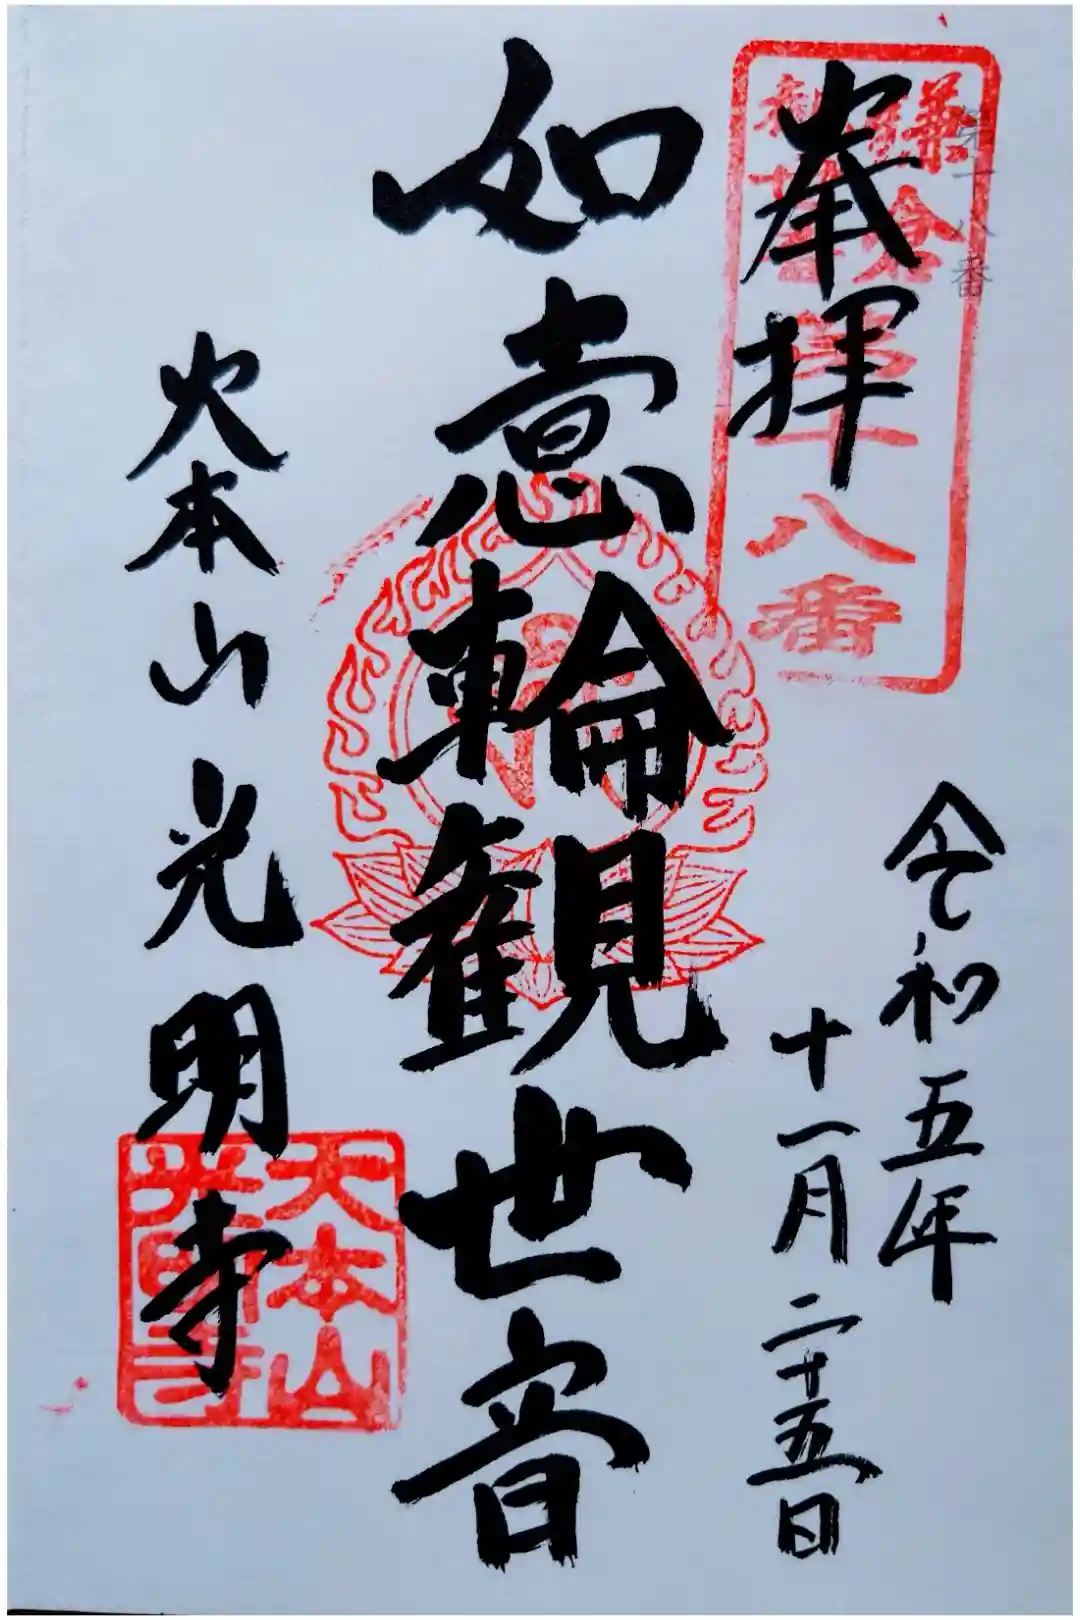 第十八番
鎌倉
三十三番
第十八番
奉拝
令和五年
十一月二十五日
如意輪観世音
大本山光明寺
天本山
光明寺